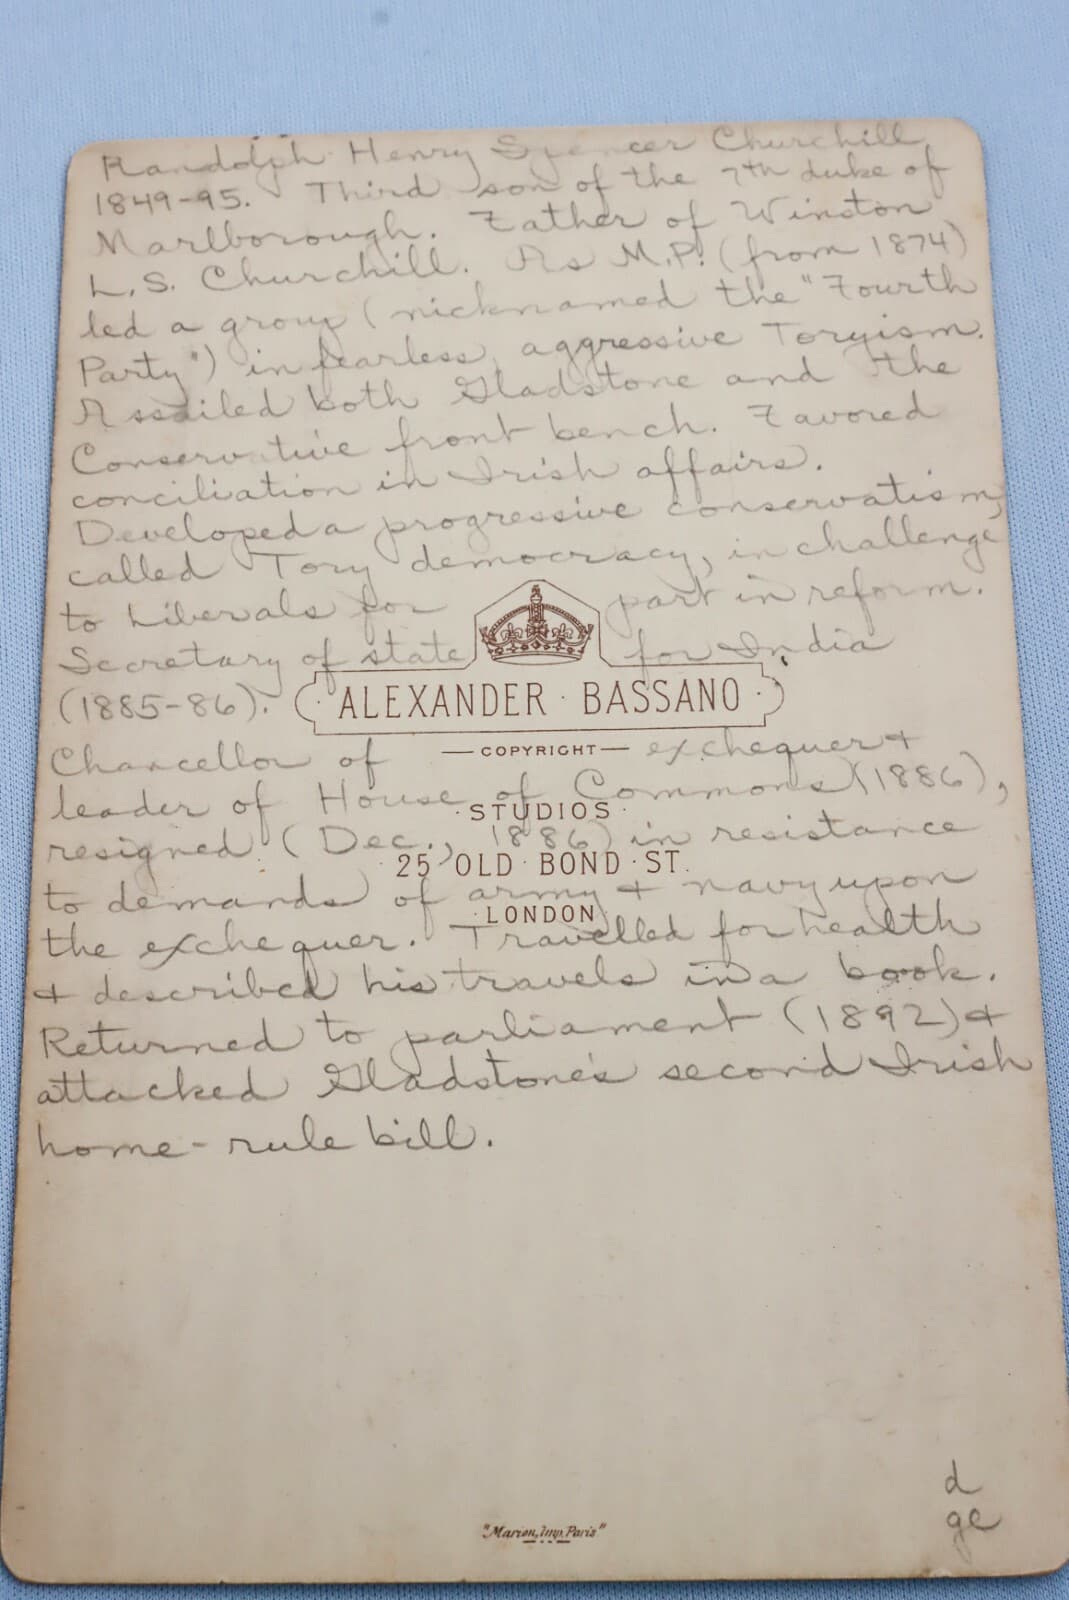 Randolph Henry Spencer Churchill
1849-95. Third son of the 7th duke of
Marlborough. Father of Winston
L.S. Churchill. As M.P. (from 1874)
led a group (nicknamed the "Fourth
Party") in fearless, aggressive Toryism.
Assailed both Gladstone and the
Conservative front bench. Favored
conciliation in Irish affairs.
Developed a progressive conservatism,
called Tory democracy, in challenge
to Liberals for part in reform.
Secretary of state for India
(1885-86).
ALEXANDER · BASSANO
COPYRIGHT
Chancellor of exchequer &
leader of House of Commons (1886),
STUDIOS
resigned (Dec., 1886) in resistance
25 OLD BOND ST.
to demands of army & navy upon
LONDON
the exchequer. Travelled for health
& described his travels in a book.
Returned to parliament (1892) &
attacked Gladstone's second Irish
home-rule bill.
d
ge
"Marion, Imp. Paris"